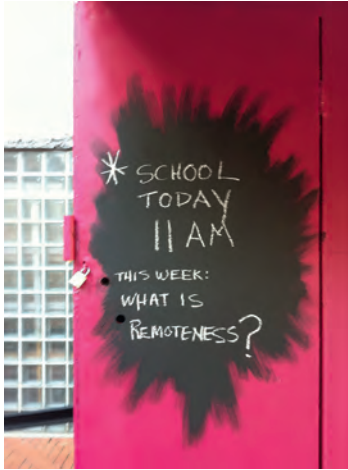 * SCHOOL
TODAY
11 AM
THIS WEEK:
WHAT IS
REMOTENESS?